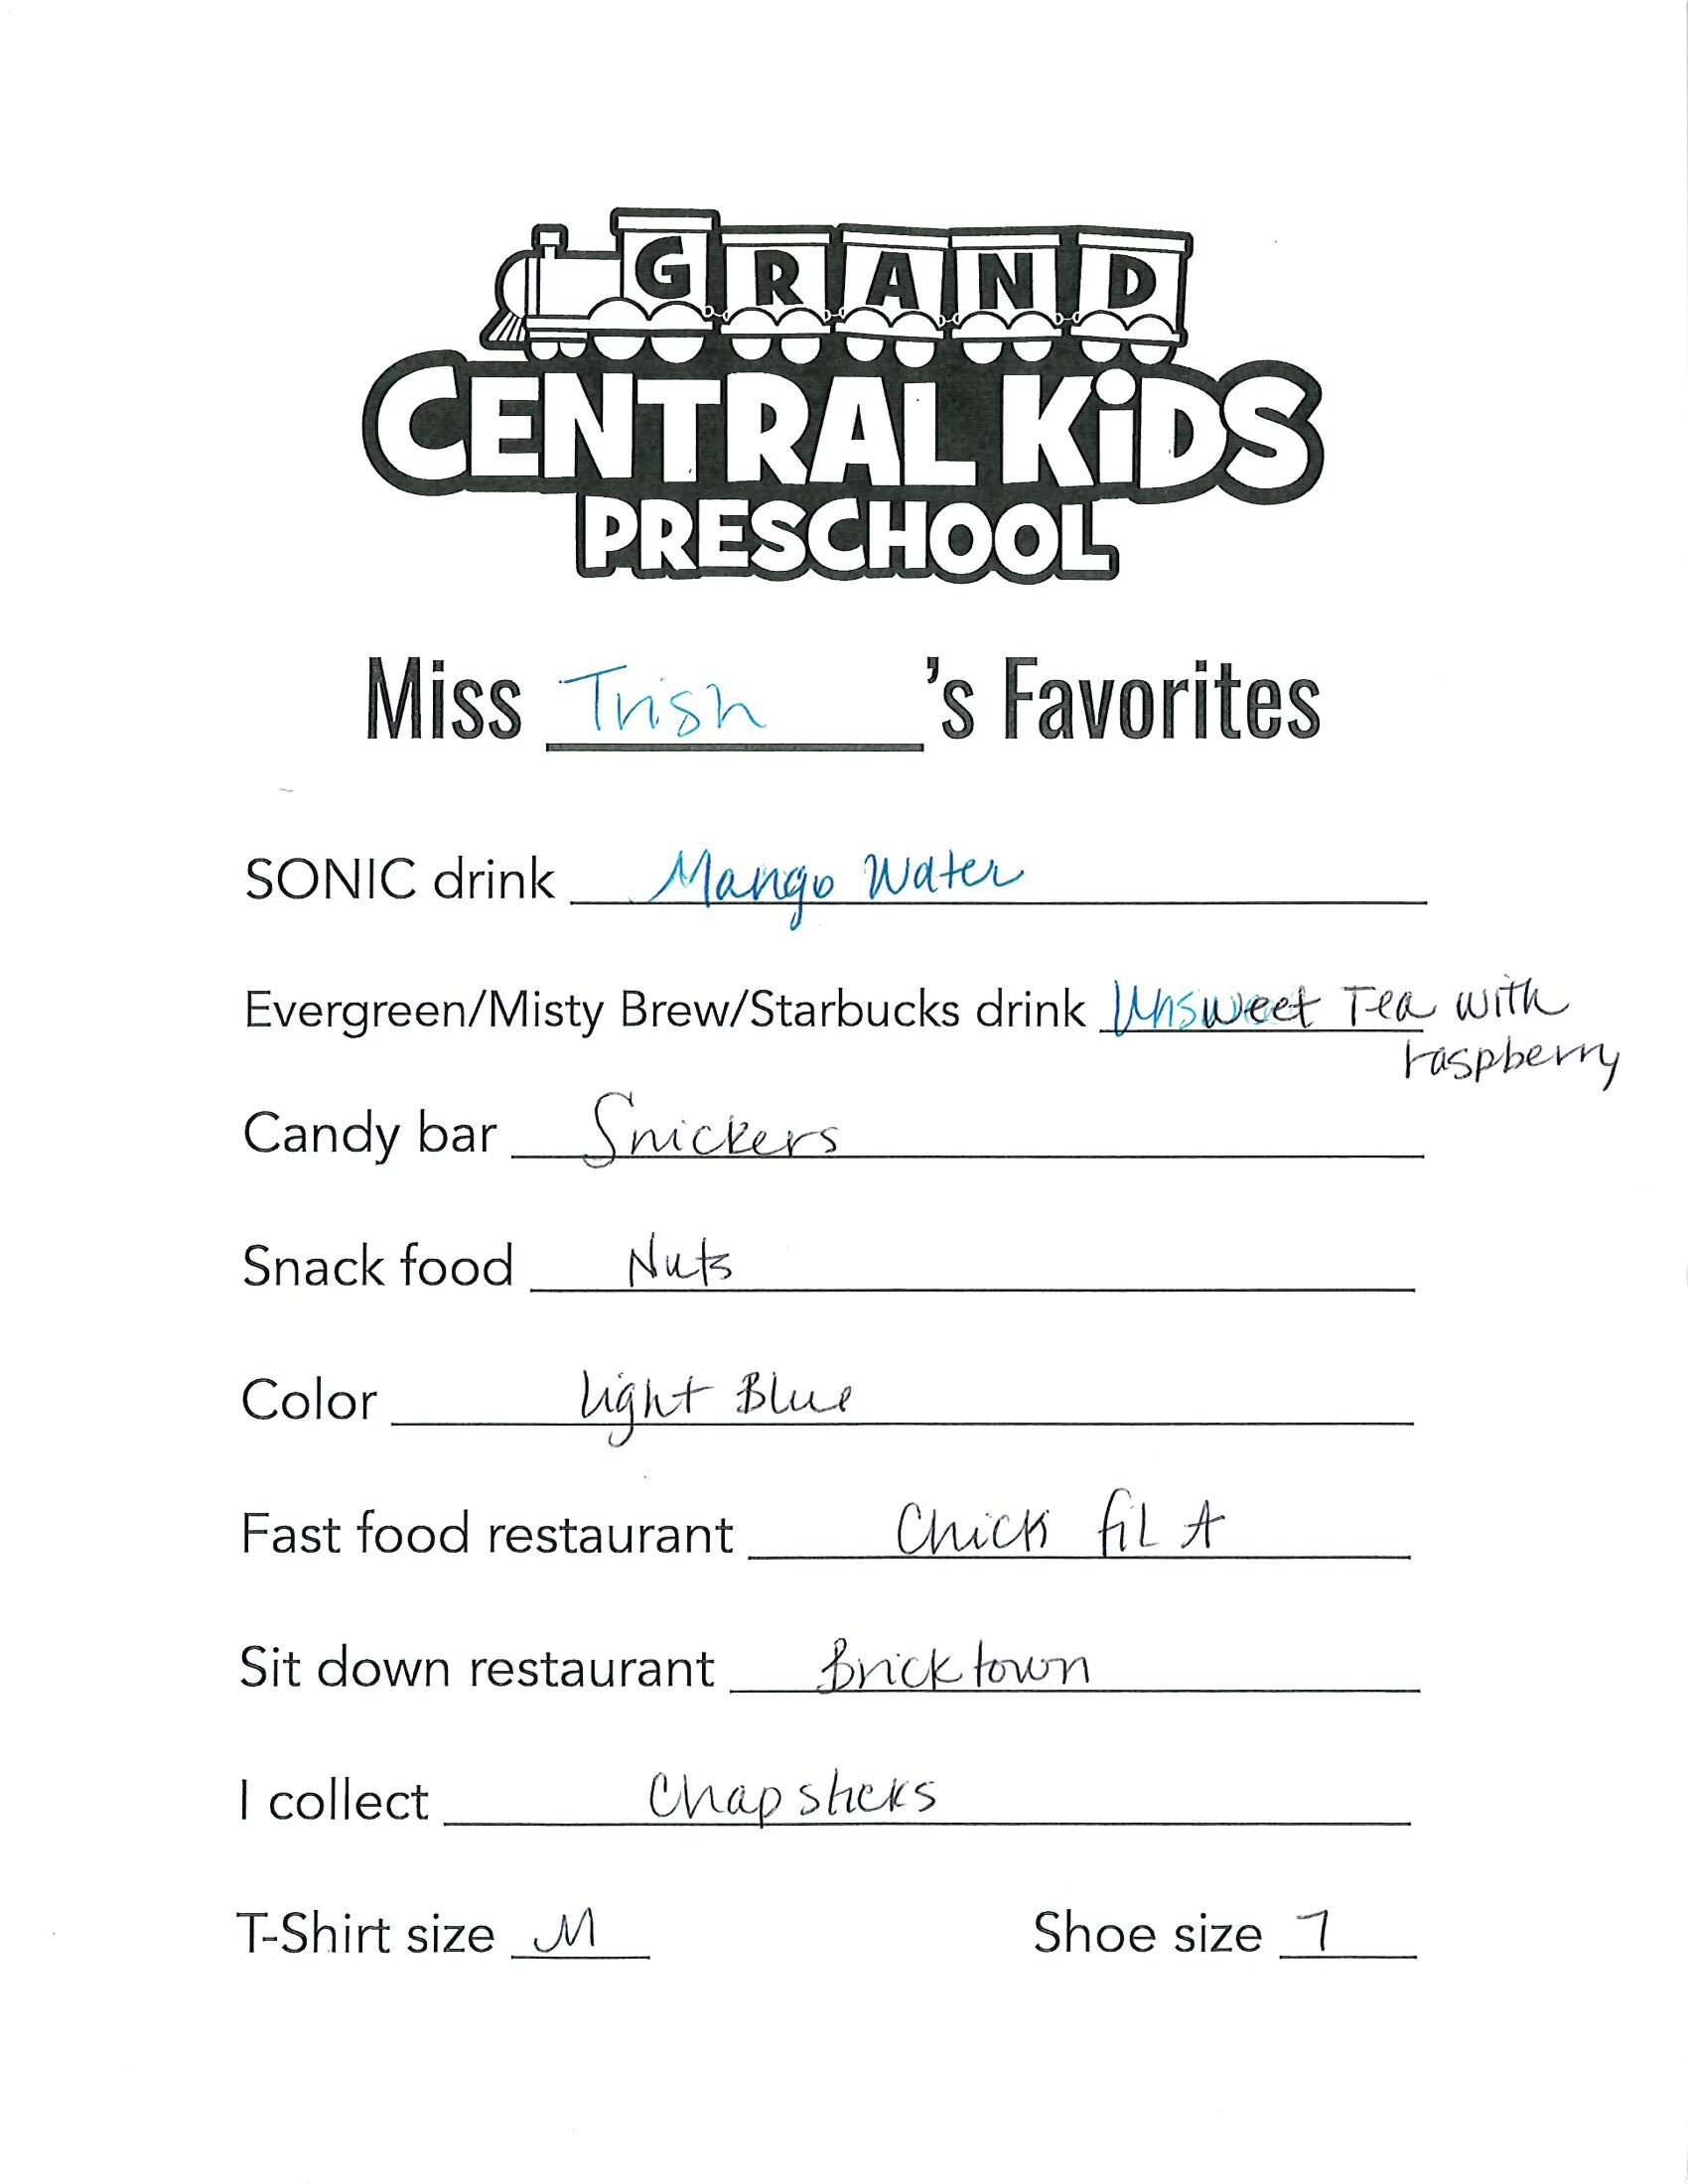 GRAND
CENTRAL KiDS
PRESCHOOL
Miss Trish 's Favorites
SONIC drink Mango Water
Evergreen/Misty Brew/Starbucks drink Unsweet Tea with
raspberry
Candy bar Snickers
Snack food Nuts
Color Light Blue
Fast food restaurant Chick fil A
Sit down restaurant Bricktown
I collect Chapsticks
T-Shirt size M Shoe size 7